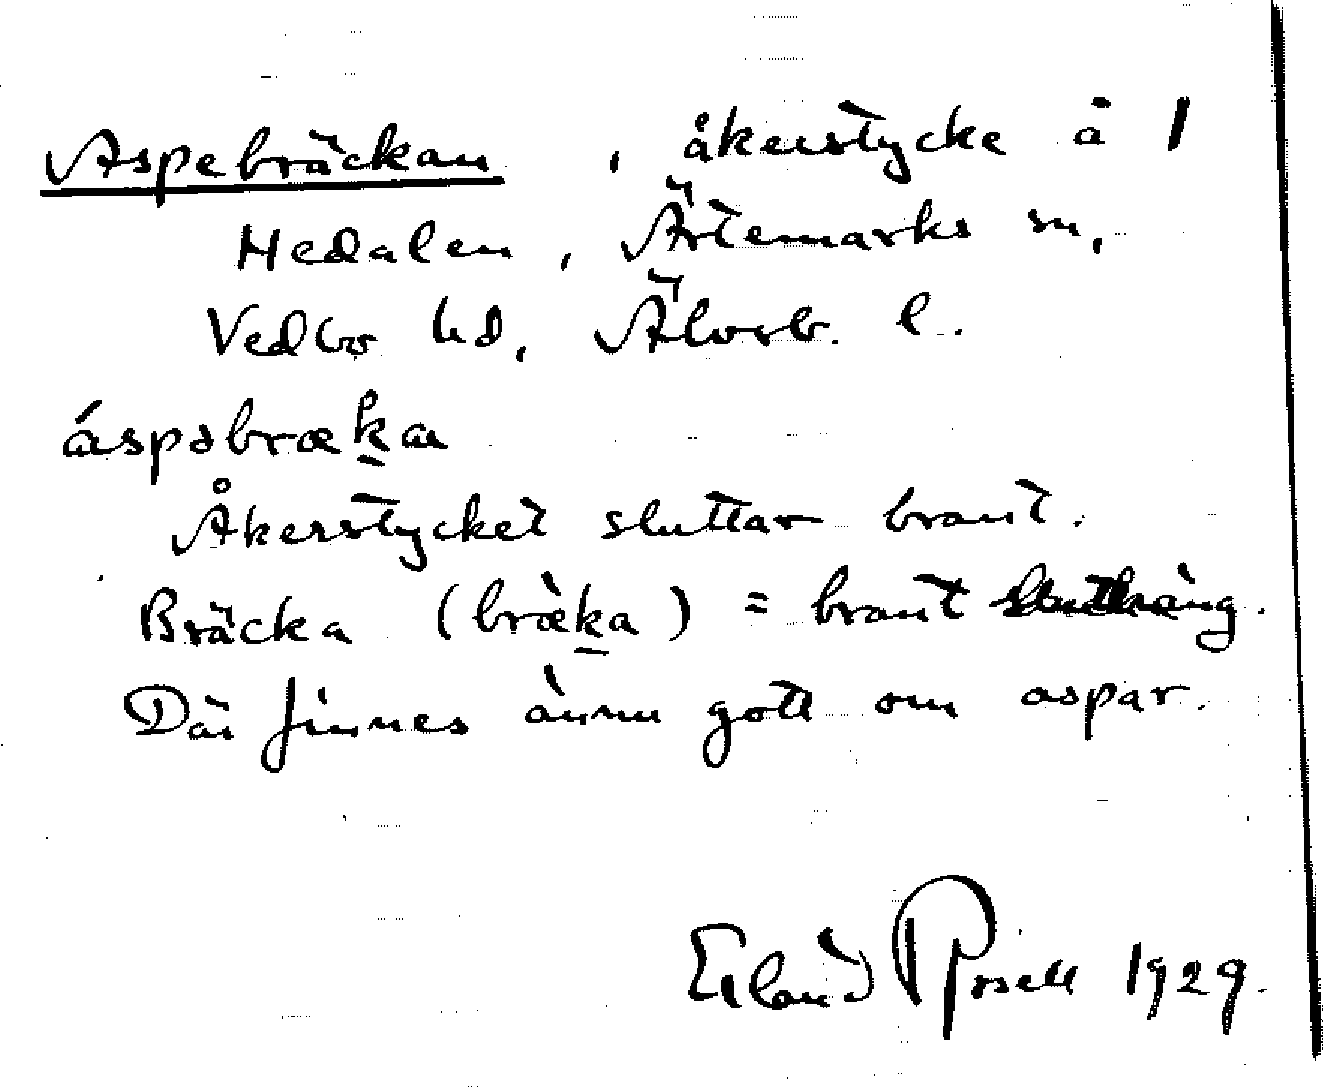 Aspebräckan, åkerstycke å 1
Hedalen, Ärtemarks sn,
Vedbo hd, Älvsb. l.
áspəbrækan
Åkerstycket sluttar brant.
Bräcka (bræ̀ka) = brant
Där finnes ännu gott om aspar.
Erland Rosell 1929.